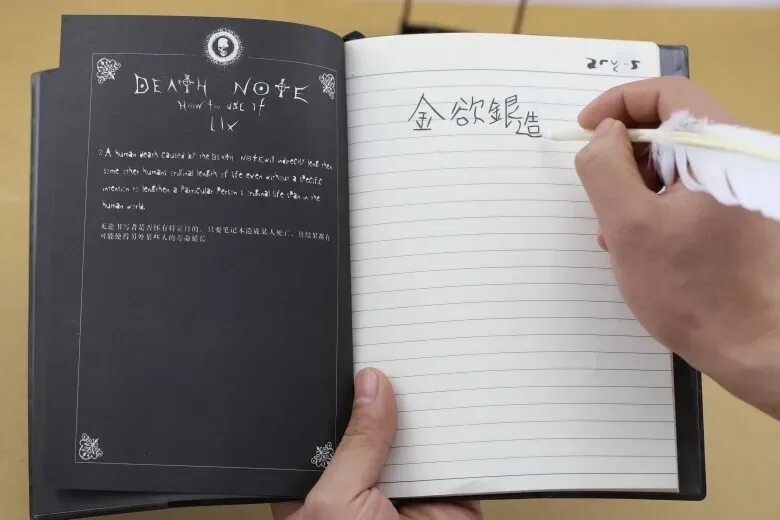 DEATH NOTE
HOW to USE It
LIX
A human death caused by the DEATH NOTE will indirectly lengthen
some other humans original length of life even without a specific
intention to lengthen a Particular Person's original life span in the
human world.
无论书写者是否怀有特定目的，只要笔记本造成某人死亡，其结果都有
可能使得另外某些人的寿命延长
金欲銀造